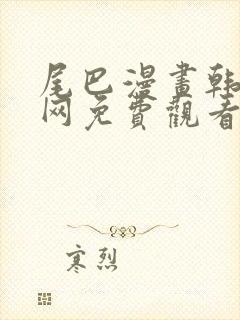 尾巴漫畫韩
网免費觀看
寒烈